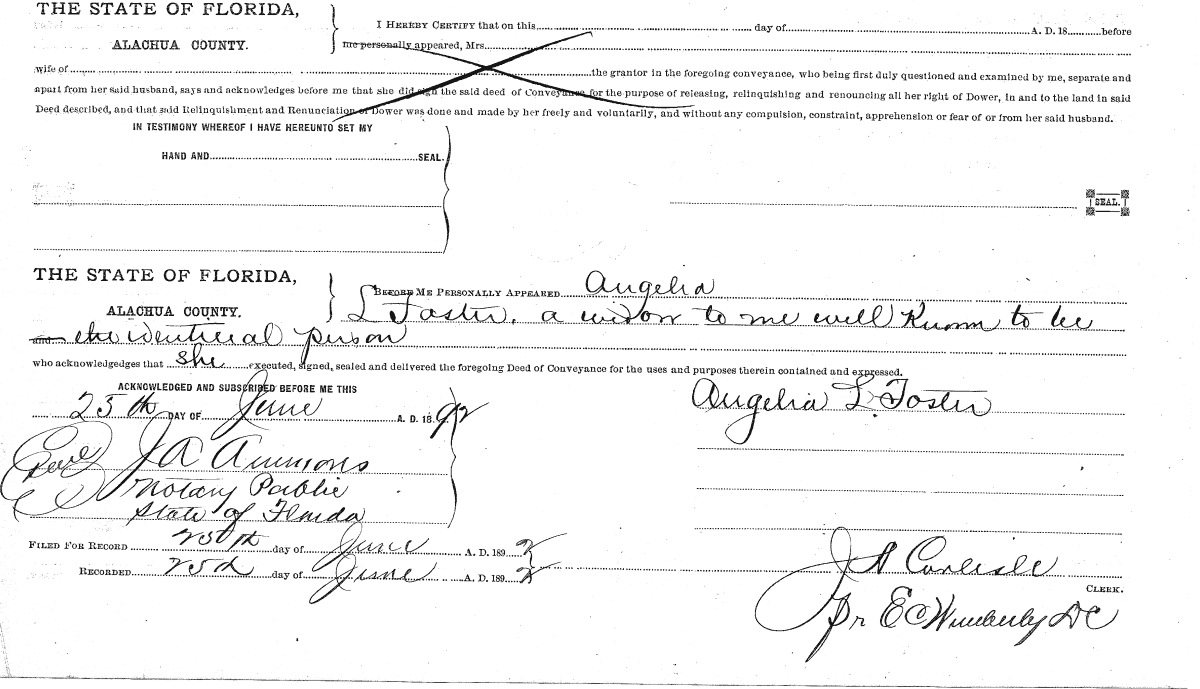 THE STATE OF FLORIDA,
ALACHUA COUNTY.
I HEREBY CERTIFY that on this day of A. D. 18 before
me personally appeared, Mrs.
wife of the grantor in the foregoing conveyance, who being first duly questioned and examined by me, separate and
apart from her said husband, says and acknowledges before me that she did sign the said deed of Conveyance for the purpose of releasing, relinquishing and renouncing all her right of Dower, in and to the land in said
Deed described, and that said Relinquishment and Renunciation of Dower was done and made by her freely and voluntarily, and without any compulsion, constraint, apprehension or fear of or from her said husband.
IN TESTIMONY WHEREOF I HAVE HEREUNTO SET MY
HAND AND SEAL.
SEAL.
THE STATE OF FLORIDA,
ALACHUA COUNTY.
BEFORE ME PERSONALLY APPEARED Angelia
L Foster, a widow to me well Known to be
the identical person
who acknowledgedges that she executed, signed, sealed and delivered the foregoing Deed of Conveyance for the uses and purposes therein contained and expressed.
ACKNOWLEDGED AND SUBSCRIBED BEFORE ME THIS
25th DAY OF June A. D. 18 92
Angelia L. Foster
Seal J A Ammons
Notary Public
State of Florida
FILED FOR RECORD 25th day of June A. D. 189 2
RECORDED 25th day of June A. D. 189 2
J A Carlisle
CLERK.
Pr E C Wimberly DC